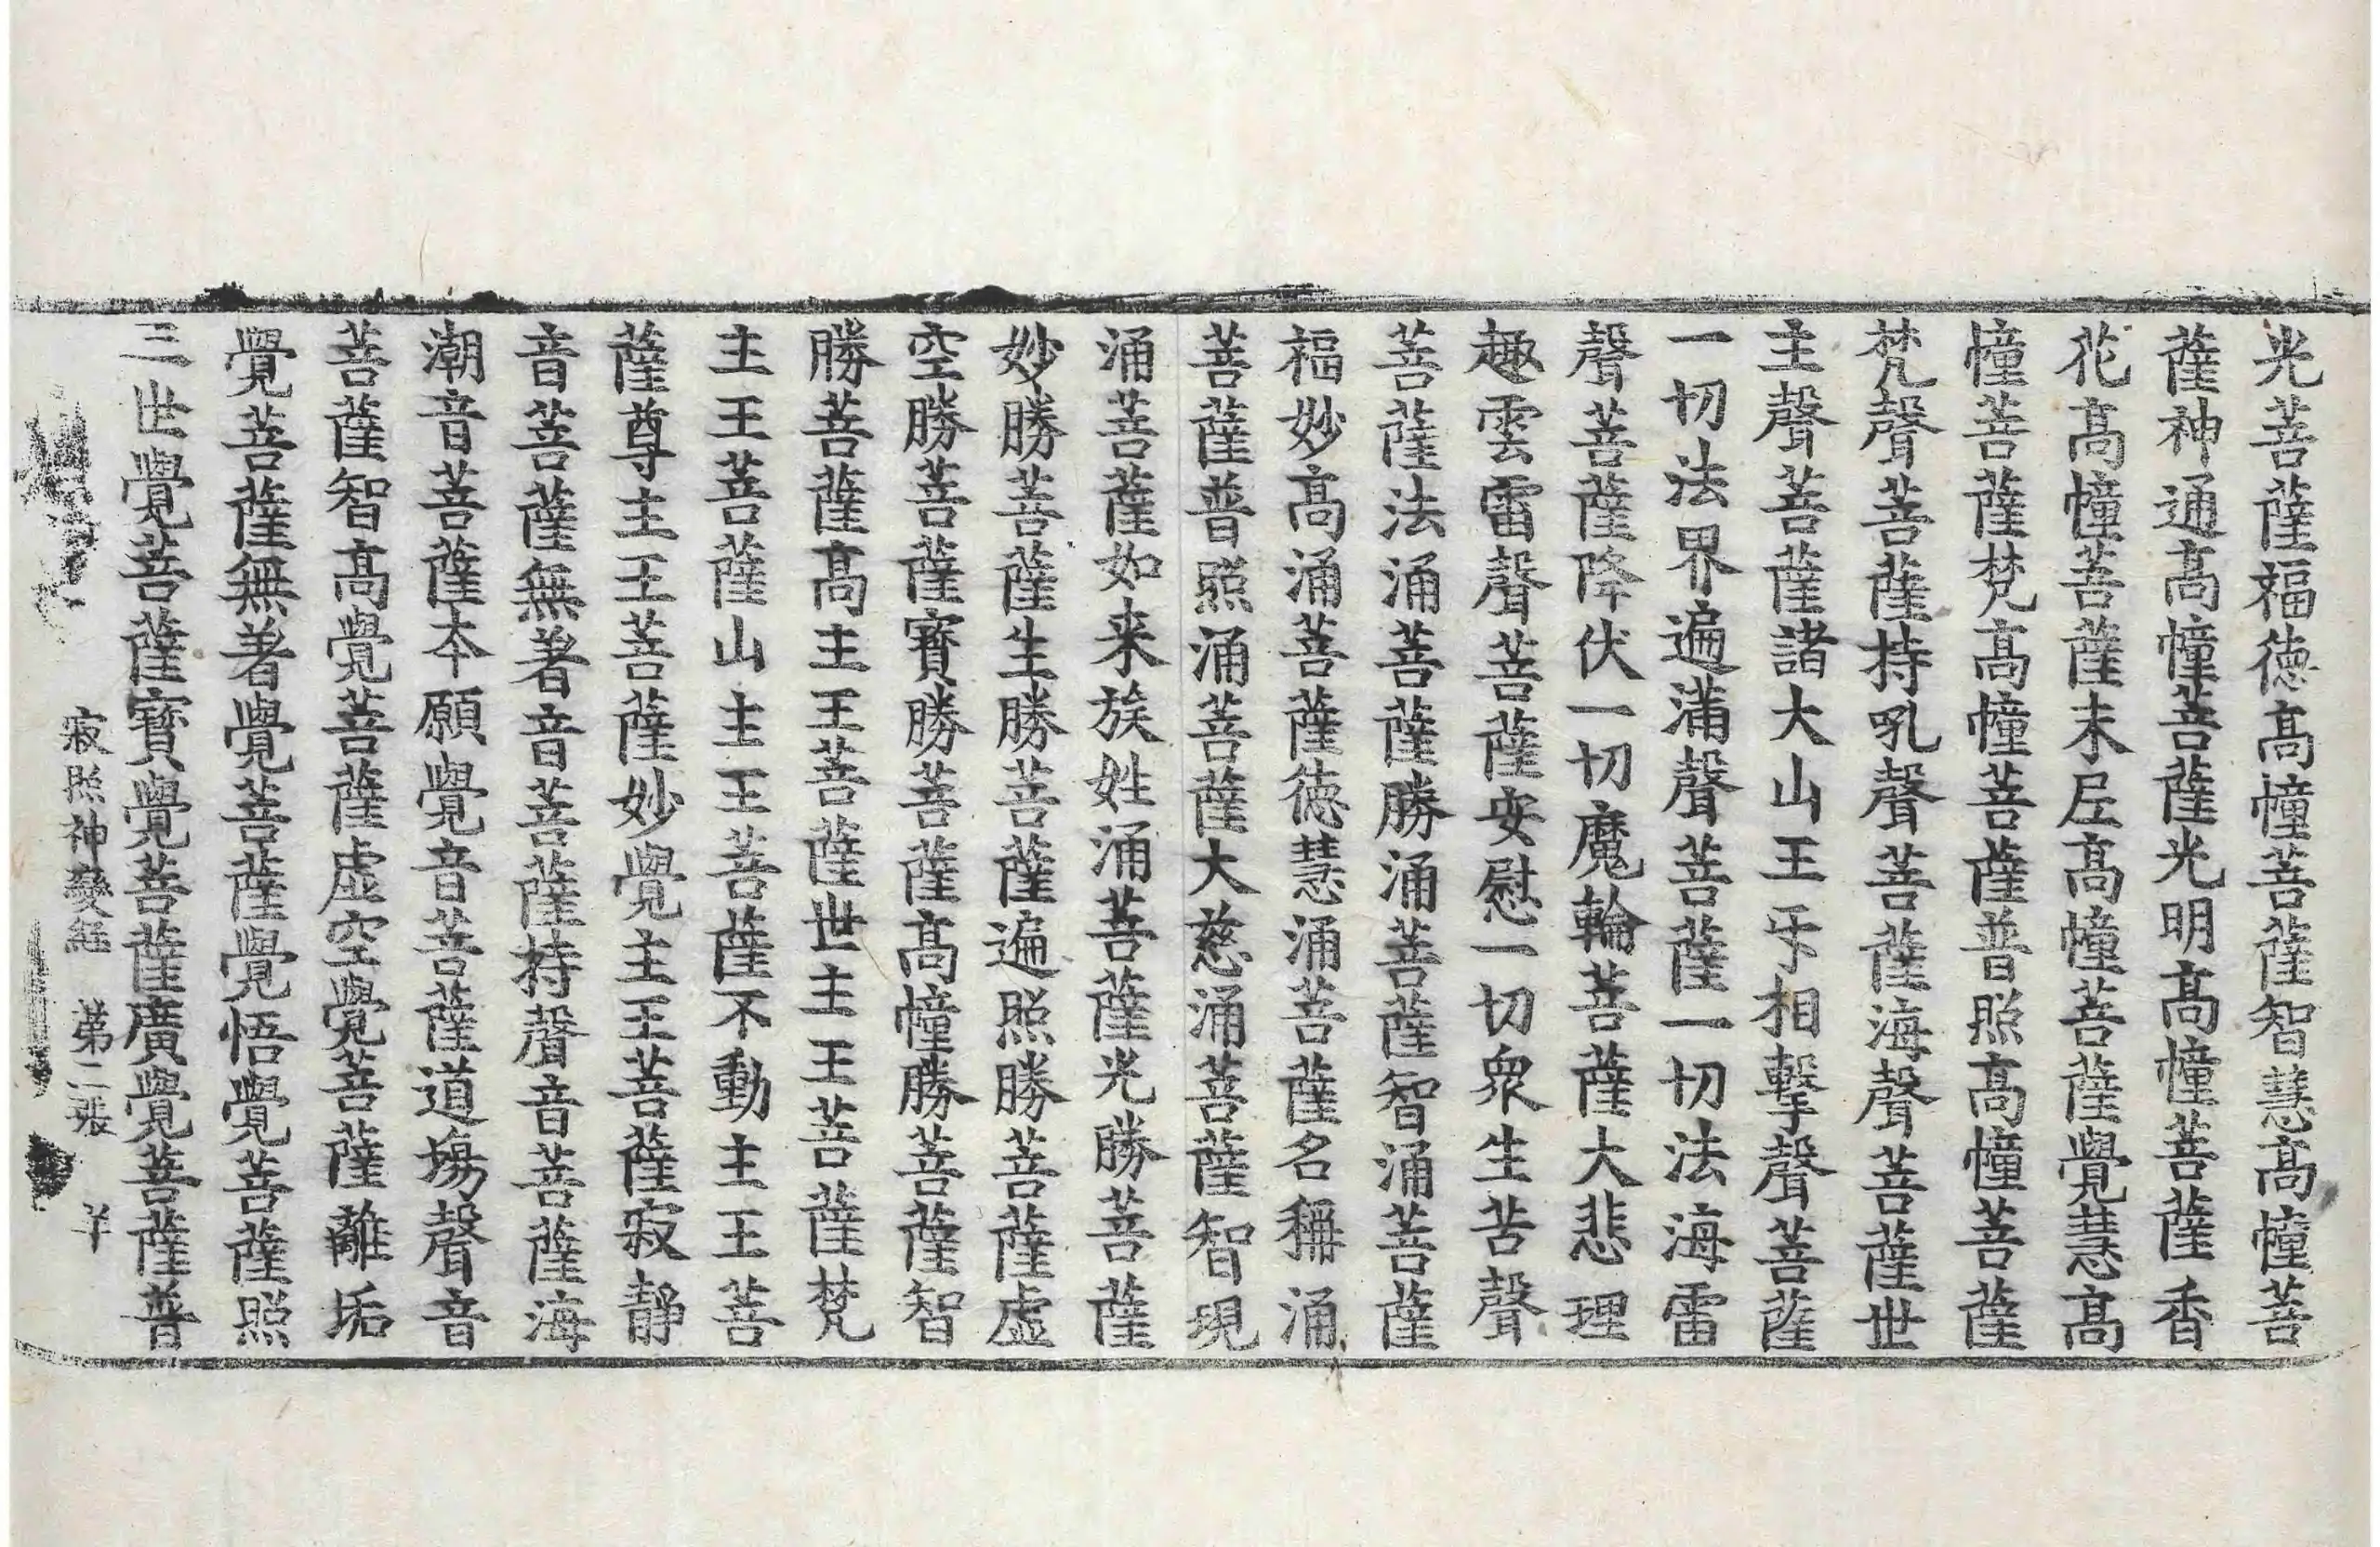 光菩薩福德高幢菩薩智慧高幢菩
薩神通高幢菩薩光明高幢菩薩香
花高幢菩薩末尼高幢菩薩覺慧高
幢菩薩梵高幢菩薩普照高幢菩薩
梵聲菩薩持吼聲菩薩海聲菩薩世
主聲菩薩諸大山王乑相擊聲菩薩
一切法界遍滿聲菩薩一切法海雷
聲菩薩降伏一切魔輪菩薩大悲理
趣雲雷聲菩薩安慰一切眾生苦聲
菩薩法涌菩薩勝涌菩薩智涌菩薩
福妙高涌菩薩德慧涌菩薩名稱涌
菩薩普照涌菩薩大慈涌菩薩智現
涌菩薩如来族姓涌菩薩光勝菩薩
妙勝菩薩生勝菩薩遍照勝菩薩虛
空勝菩薩寶勝菩薩高幢勝菩薩智
勝菩薩高主王菩薩世主王菩薩梵
主王菩薩山主王菩薩不動主王菩
薩尊主王菩薩妙覺主王菩薩寂靜
音菩薩無著音菩薩持聲音菩薩海
潮音菩薩本願覺音菩薩道場聲音
菩薩智高覺菩薩虛空覺菩薩離垢
覺菩薩無著覺菩薩覺悟覺菩薩照
三世覺菩薩寶覺菩薩廣覺菩薩普
寂照神變經 第二張 羊